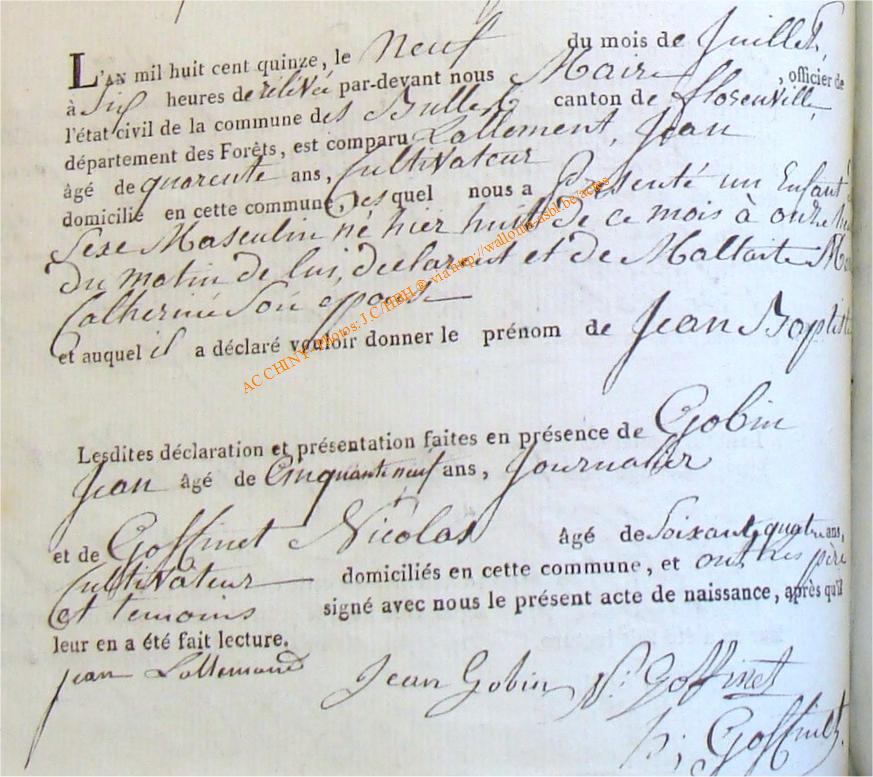 L'AN mil huit cent quinze, le neuf du mois de Juillet,
à Six heures de rélévée par-devant nous Maire, officier de
l'état civil de la commune des Bulles canton de florenville,
département des Forêts, est comparu Lallement, Jean
âgé de quarente ans, Cultivateur
domicilié en cette commune, lequel nous a Présenté un Enfant
Sexe Masculin né hier huit de ce mois à onze
du matin de lui, declarant et de Maltaite
Catherine Son epouse
et auquel il a déclaré vouloir donner le prénom de Jean Baptist
Lesdites déclaration et présentation faites en présence de Gobin
Jean âgé de Cinquante neuf ans, Journalier
et de Goffinet Nicolas âgé de Soixante quatre ans,
Cultivateur domiciliés en cette commune, et ont les père
et temoins signé avec nous le présent acte de naissance, après qu'il
leur en a été fait lecture.
jean Lallemand Jean Gobin N: Goffinet
Goffinet
AC CHINY - photos: J.C/HBH ® via http://wallonia-asbl.be/actes